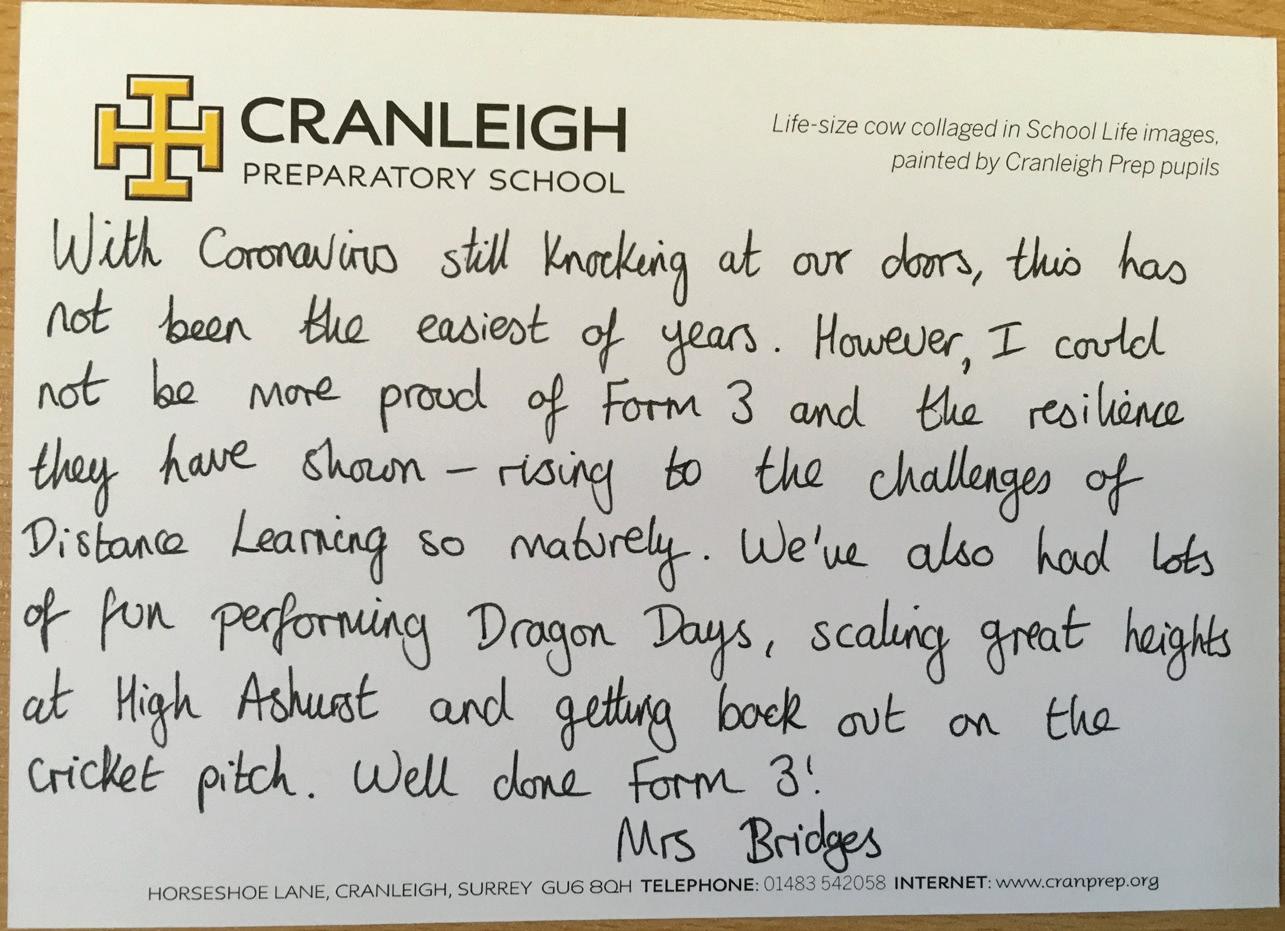 CRANLEIGH
PREPARATORY SCHOOL
Life-size cow collaged in School Life images,
painted by Cranleigh Prep pupils
With Coronavirus still knocking at our doors, this has
not been the easiest of years. However, I could
not be more proud of Form 3 and the resilience
they have shown – rising to the challenges of
Distance Learning so maturely. We've also had lots
of fun performing Dragon Days, scaling great heights
at High Ashurst and getting back out on the
cricket pitch. Well done Form 3!
Mrs Bridges
HORSESHOE LANE, CRANLEIGH, SURREY GU6 8QH TELEPHONE: 01483 542058 INTERNET: www.cranprep.org